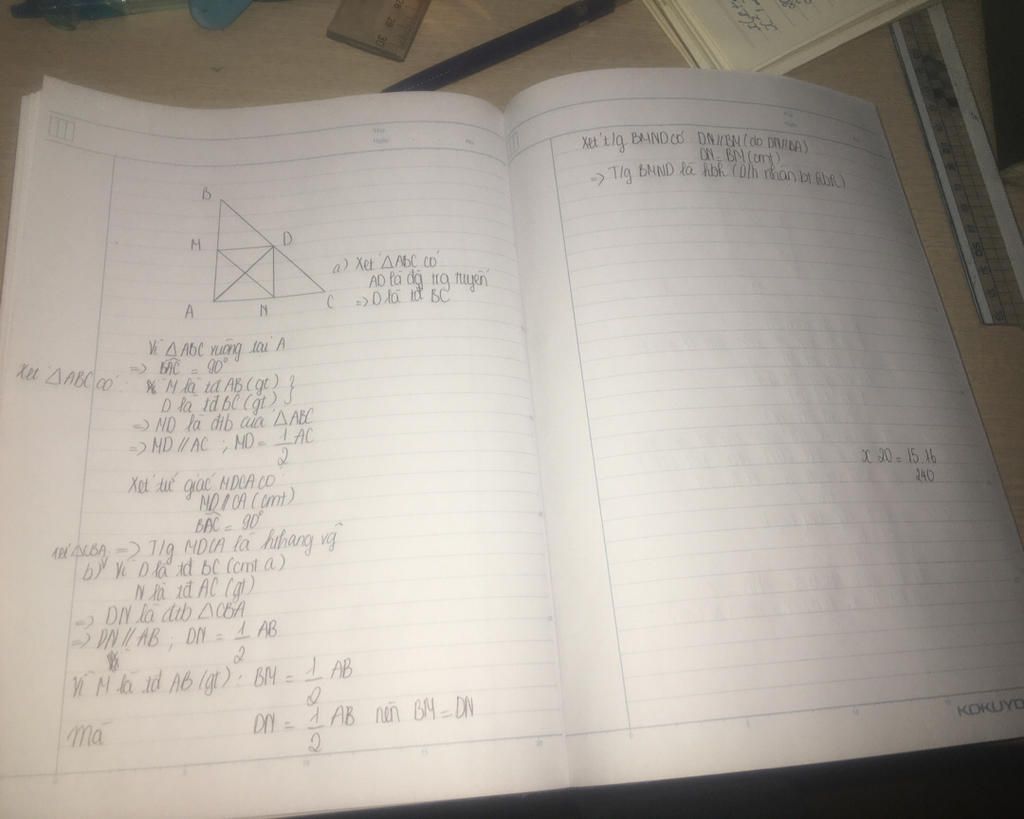 B
M
D
A
N
C
a) Xét △ABC có
AD là đg trg tuyến
=> D là tđ BC
Vì △ABC vuông tại A
=> BAC = 90°
Xét △ABC có:
M là tđ AB (gt) }
D là tđ BC (gt)
=> MD là đtb của △ABC
=> MD // AC ; MD = 1/2 AC
Xét tứ giác MDCA có
MD // CA (cmt)
BAC = 90°
=> T/g MDCA là hthang vg
Xét △CBA
b) Vì D là tđ BC (cmt a)
N là tđ AC (gt)
=> DN là đtb △CBA
=> DN // AB ; DN = 1/2 AB
Vì M là tđ AB (gt) : BM = 1/2 AB
Mà DN = 1/2 AB nên BM = DN
Xét t/g BMND có DN // BM (do DN // BA)
DN = BM (cmt)
=> T/g BMND là hbh (D/h nhận bt hbh)
x 20 = 15.16
240
KOKUYO
30